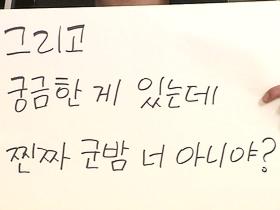 그리고
궁금한 게 있는데
찐짜 군밤 너 아니야?